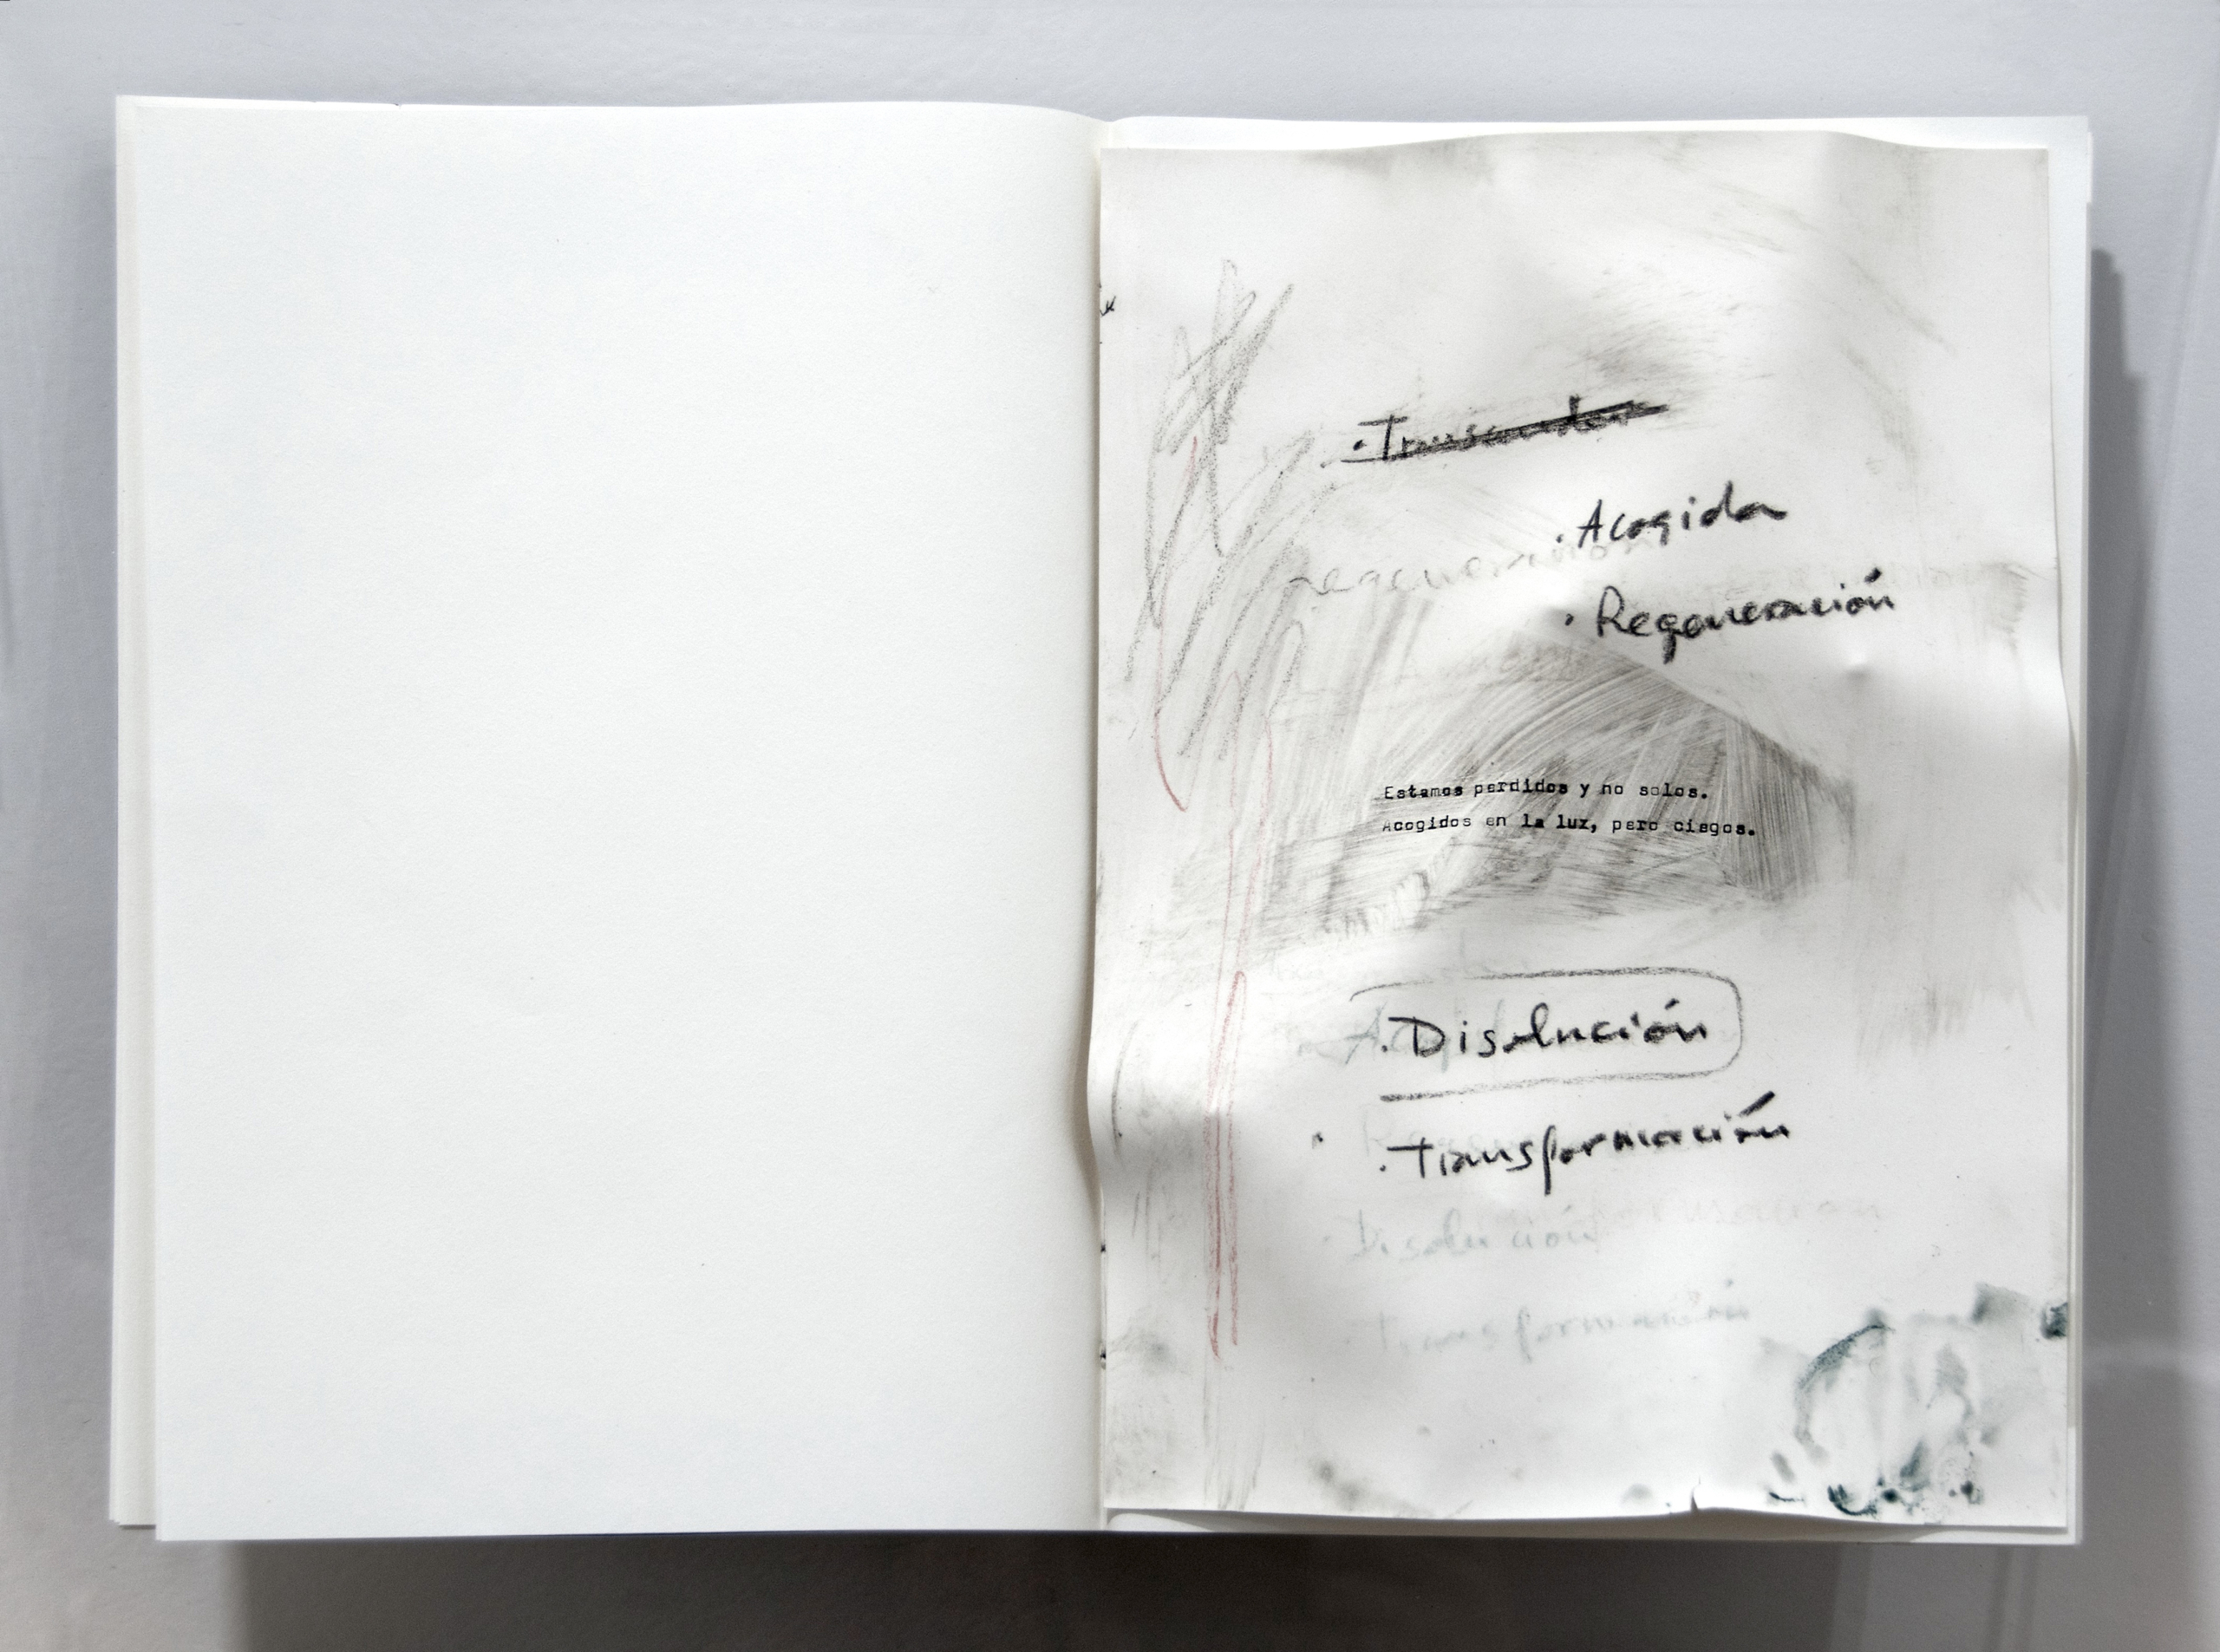 · Trascender
· Acogida
regeneración
· Regeneración
Estamos perdidos y no solos.
Acogidos en la luz, pero ciegos.
· Disolución
· Transformación
· Disolución
Transformación